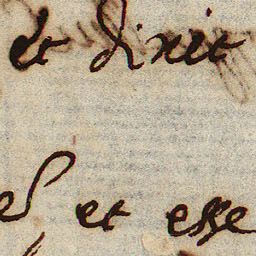 et dixit
el et esse